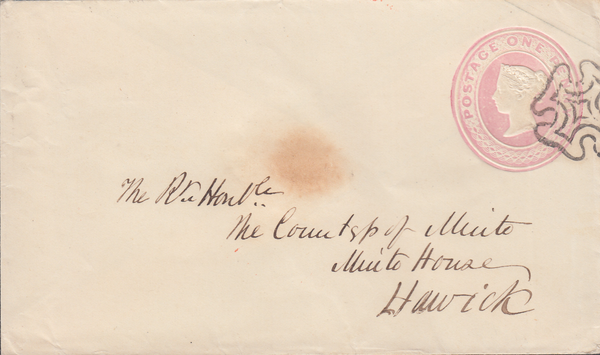 POSTAGE ONE
The Rt. Honble
The Countess of Minto
Minto House
Hawick